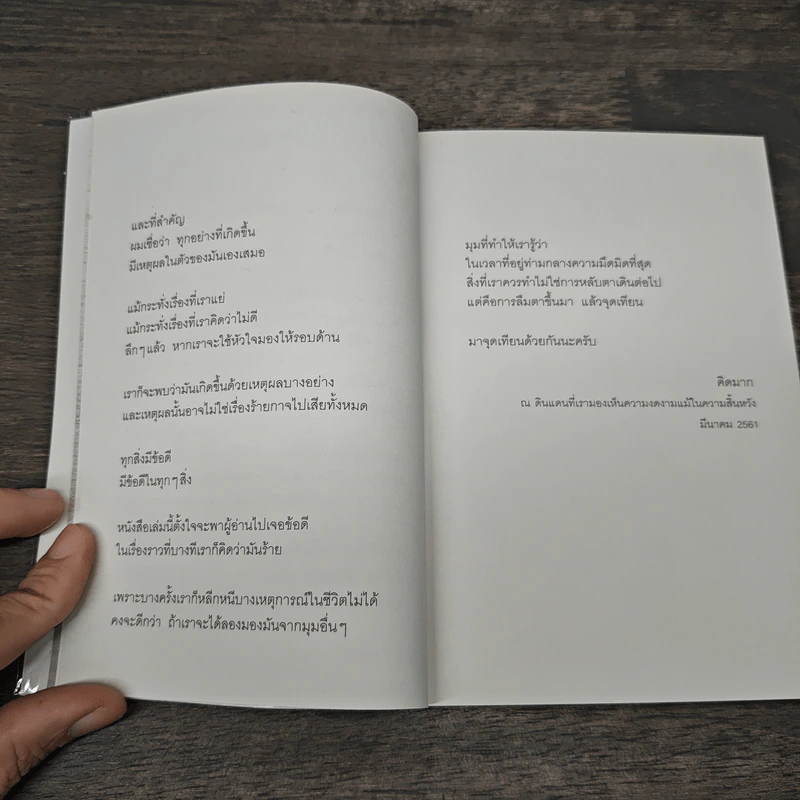 และที่สำคัญ
ผมเชื่อว่า ทุกอย่างที่เกิดขึ้น
มีเหตุผลในตัวของมันเองเสมอ
แม้กระทั่งเรื่องที่เราแย่
แม้กระทั่งเรื่องที่เราคิดว่าไม่ดี
ลึกๆ แล้ว หากเราจะใช้หัวใจมองให้รอบด้าน
เราก็จะพบว่ามันเกิดขึ้นด้วยเหตุผลบางอย่าง
และเหตุผลนั้นอาจไม่ใช่เรื่องร้ายกาจไปเสียทั้งหมด
ทุกสิ่งมีข้อดี
มีข้อดีในทุกๆ สิ่ง
หนังสือเล่มนี้ตั้งใจจะพาผู้อ่านไปเจอข้อดี
ในเรื่องราวที่บางทีเราก็คิดว่ามันร้าย
เพราะบางครั้งเราก็หลีกหนีบางเหตุการณ์ในชีวิตไม่ได้
คงจะดีกว่า ถ้าเราจะได้ลองมองมันจากมุมอื่นๆ
มุมที่ทำให้เรารู้ว่า
ในเวลาที่อยู่ท่ามกลางความมืดมิดที่สุด
สิ่งที่เราควรทำไม่ใช่การหลับตาเดินต่อไป
แต่คือการลืมตาขึ้นมา แล้วจุดเทียน
มาจุดเทียนด้วยกันนะครับ
คิดมาก
ณ ดินแดนที่เรามองเห็นความงดงามแม้ในความสิ้นหวัง
มีนาคม 2561